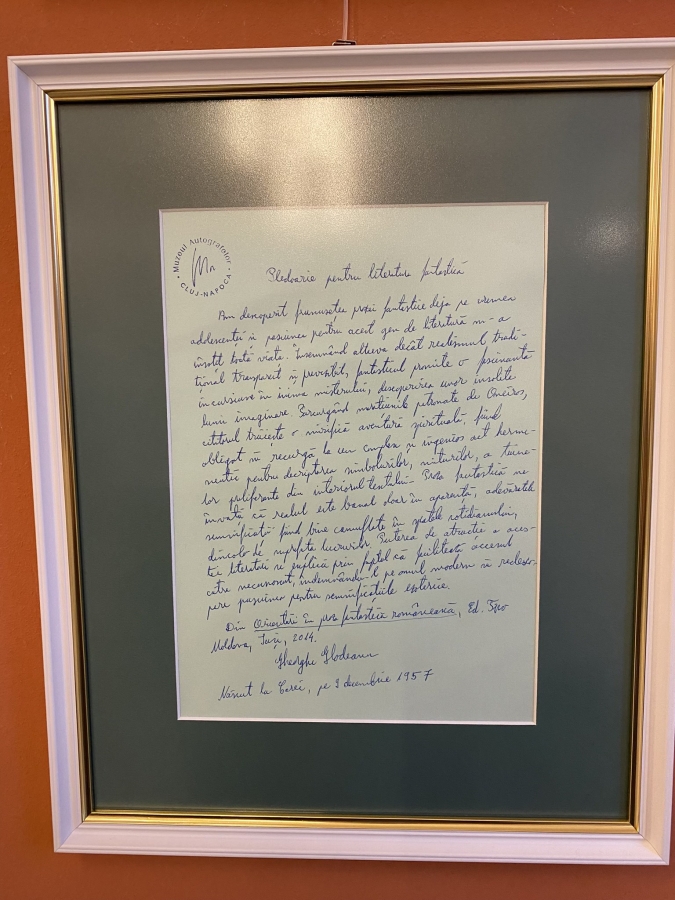 Muzeul Autografelor
CLUJ-NAPOCA
Pledoarie pentru literatura fantastică
Am descoperit frumusețea prozei fantastice deja pe vremea
adolescenței și pasiunea pentru acest gen de literatură m-a
însoțit toată viața. Însemnând altceva decât realismul tradi-
țional transparent și previzibil, fantasticul promite o fascinantă
incursiune în inima misterului, descoperirea unor insolite
lumi imaginare. Parcurgând narațiunile patronate de Oneiros,
cititorul trăiește o mirifică aventură spirituală, fiind
obligat să recurgă la un complex și ingenios act herme-
neutic pentru decriptarea simbolurilor, miturilor, a taine-
lor proliferante din interiorul textului. Proza fantastică ne
învață că realul este banal doar în aparență, adevăratele
semnificații fiind bine camuflate în spatele cotidianului,
dincolo de suprafața lucrurilor. Puterea de atracție a aces-
tei literaturi se explică prin faptul că facilitează accesul
către necunoscut, îndemnându-l pe omul modern să redesco-
pere pasiunea pentru semnificațiile ezoterice.
Din Orientări în proza fantastică românească, Ed. Tipo
Moldova, Iași, 2014.
Gheorghe Glodeanu
Născut la Carei, pe decembrie 1957